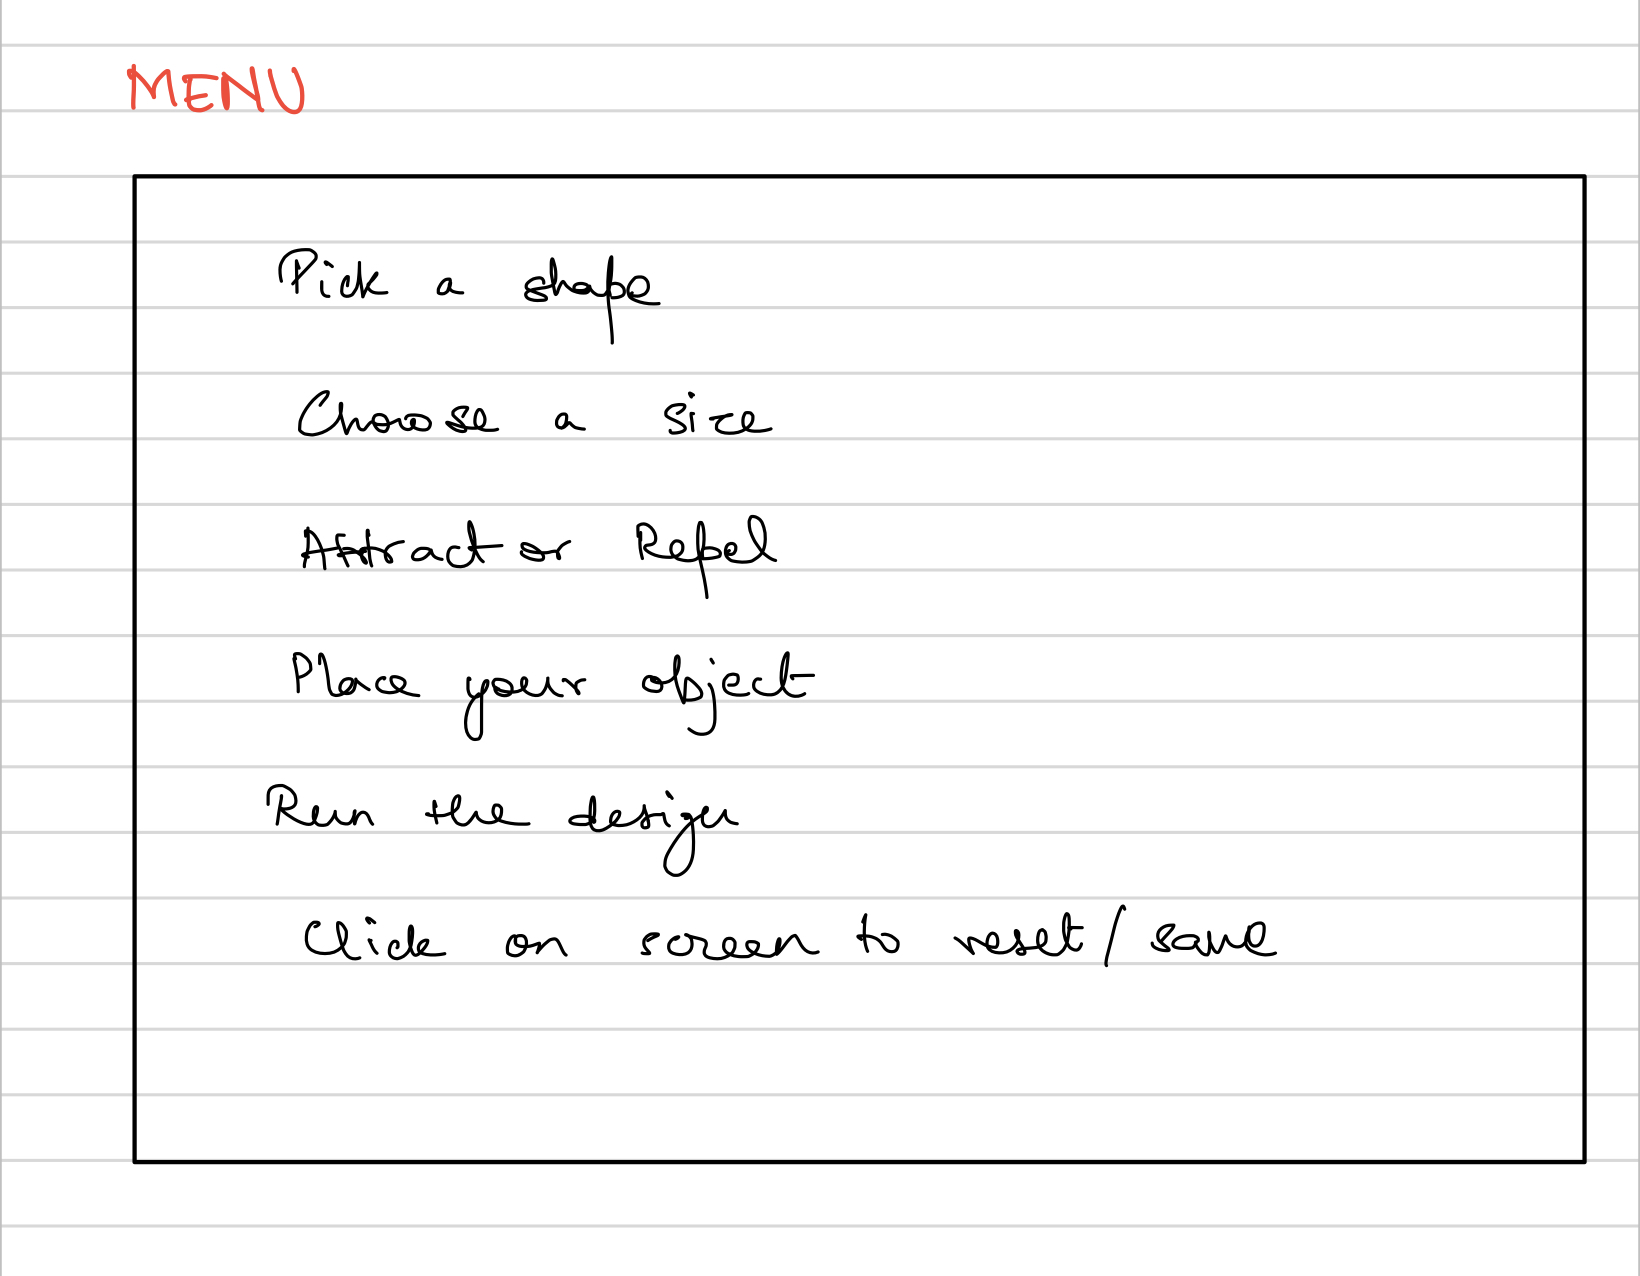 MENU
Pick a shape
Choose a size
Attract or Repel
Place your object
Run the design
Click on screen to reset/save